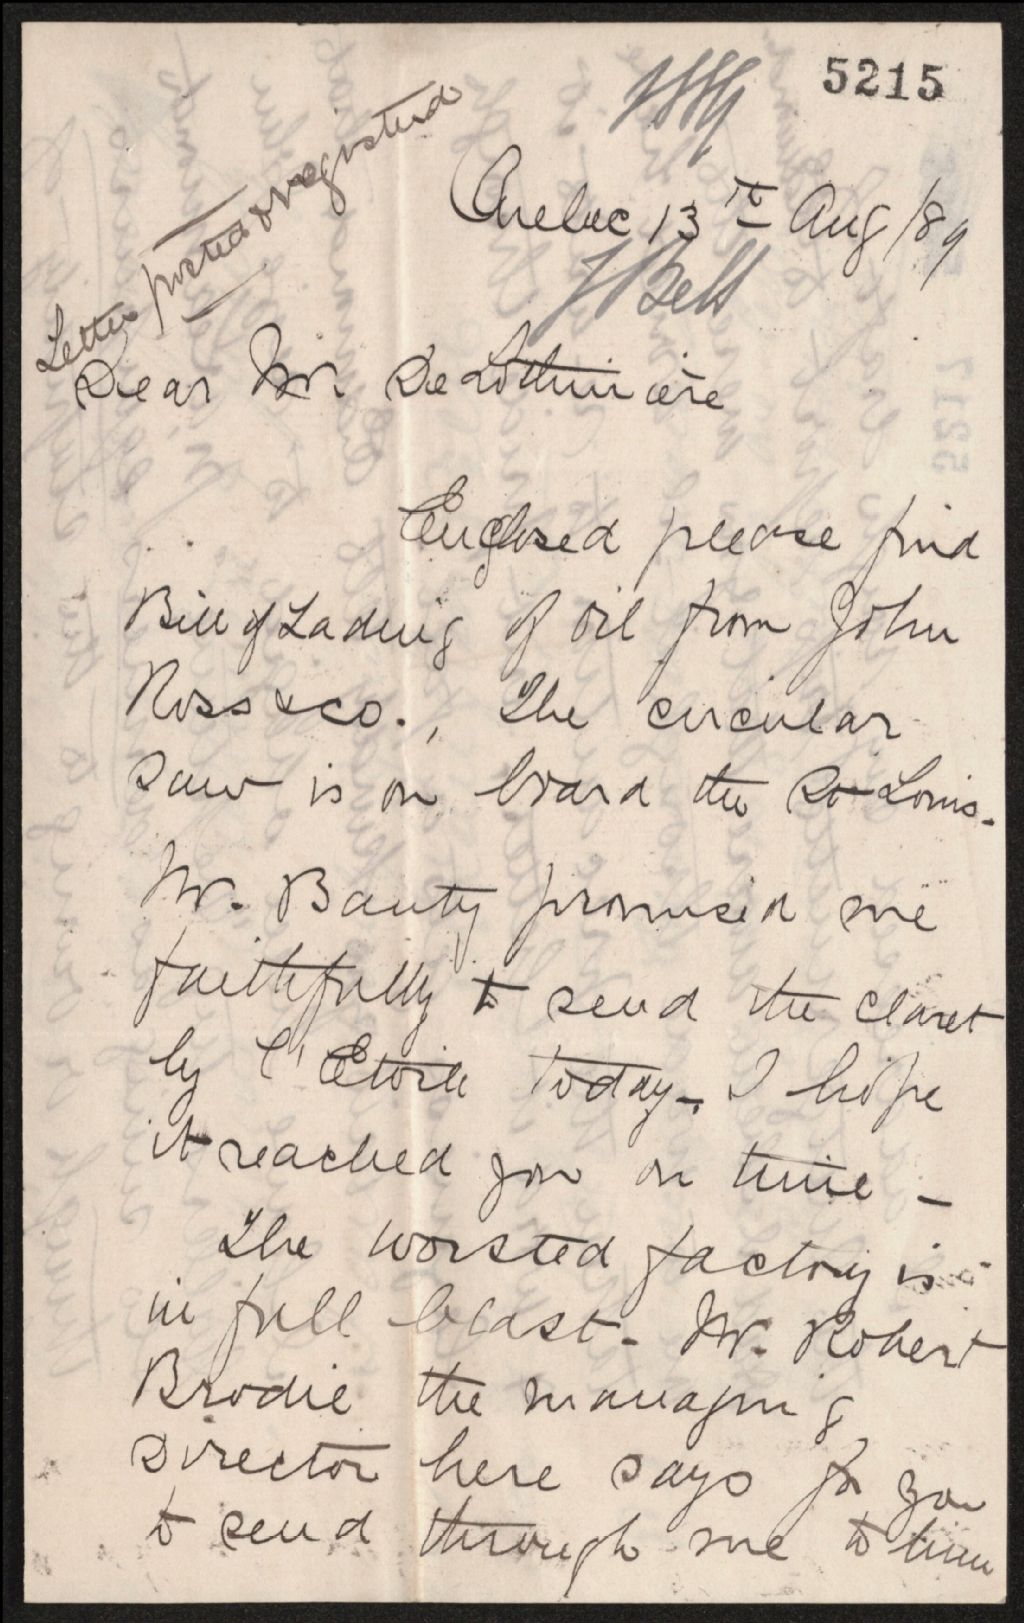 5215
Quebec 13th Aug /89
J Bell
Letter posted & registered
Dear Mr. De Lotbiniere
Enclosed please find
Bill of Lading of oil from John
Ross & co., The circular
saw is on board the St Louis.
Mr. Bauty promised me
faithfully to send the claret
by l'Etoile today. I hope
it reached you on time -
The worsted factory is
in full blast - Mr. Robert
Brodie the managing
Director here says for you
to send through me to him